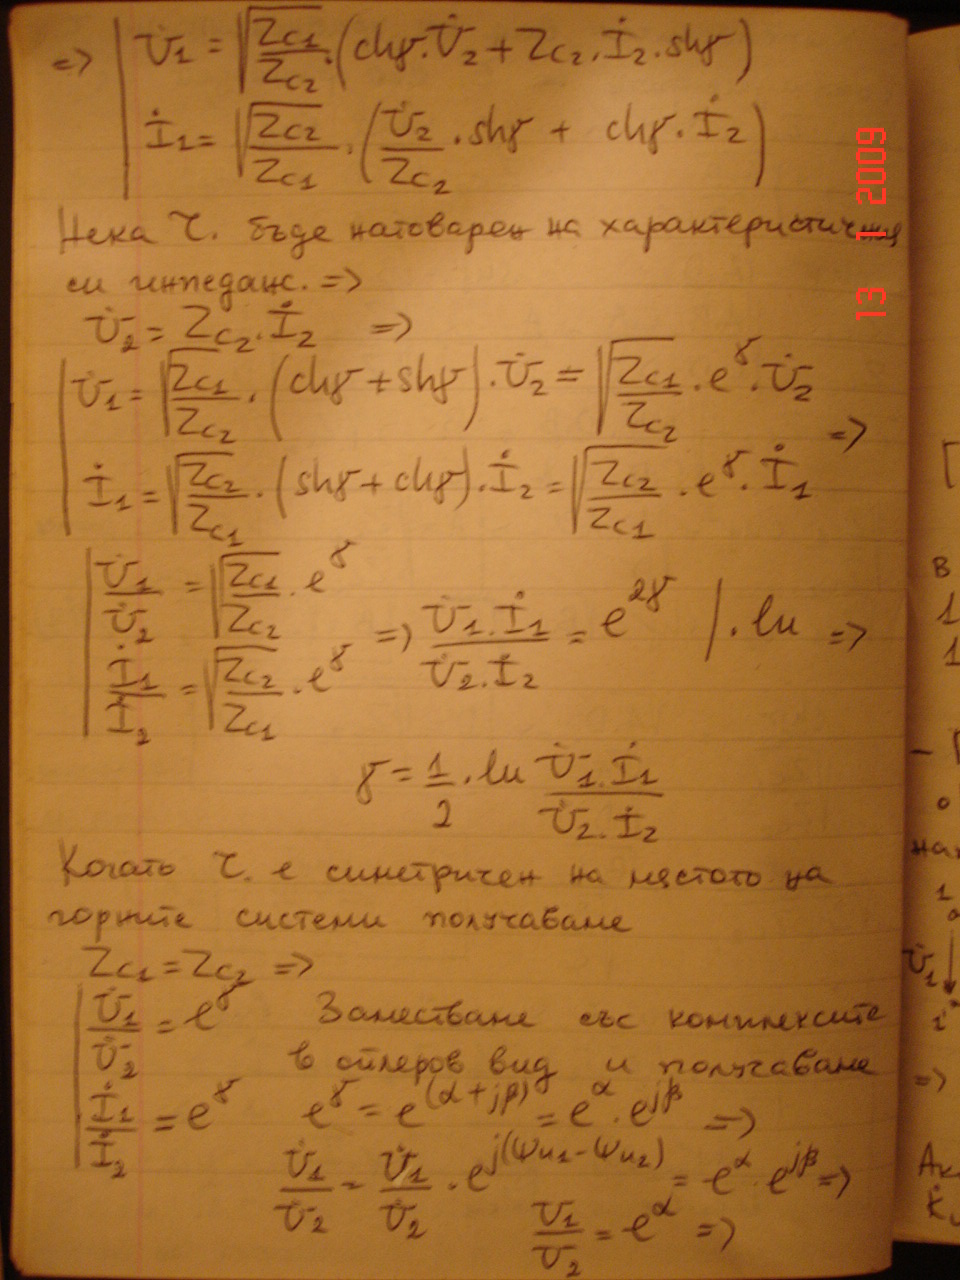 => | U̇1 = √(Zc1/Zc2) . (chγ.U̇2 + Zc2.İ2.shγ)
İ1 = √(Zc2/Zc1) . (U̇2/Zc2 . shγ + chγ.İ2)
Нека Ч. бъде натоварен на характеристичния
си импеданс. =>
U̇2 = Zc2.İ2 =>
U̇1 = √(Zc1/Zc2) . (chγ + shγ).U̇2 = √(Zc1/Zc2) . e^γ . U̇2 =>
İ1 = √(Zc2/Zc1) . (shγ + chγ).İ2 = √(Zc2/Zc1) . e^γ . İ1
U̇1/U̇2 = √(Zc1/Zc2) . e^γ
İ1/İ2 = √(Zc2/Zc1) . e^γ => U̇1.İ1/U̇2.İ2 = e^2γ | . ln =>
γ = 1/2 . ln U̇1.İ1/U̇2.İ2
Когато Ч. е симетричен на мястото на
горните системи получаваме
Zc1 = Zc2 =>
U̇1/U̇2 = e^γ Заместваме със комплексите
в ойлеров вид и получаваме
İ1/İ2 = e^γ e^γ = e^(α+jβ) = e^α . e^jβ =>
U̇1/U̇2 = U̇1/U̇2 . e^j(Ψu1-Ψu2) = e^α . e^jβ =>
U1/U2 = e^α =>
13 1 2009
В
1
1
0
1
U̇1
=>